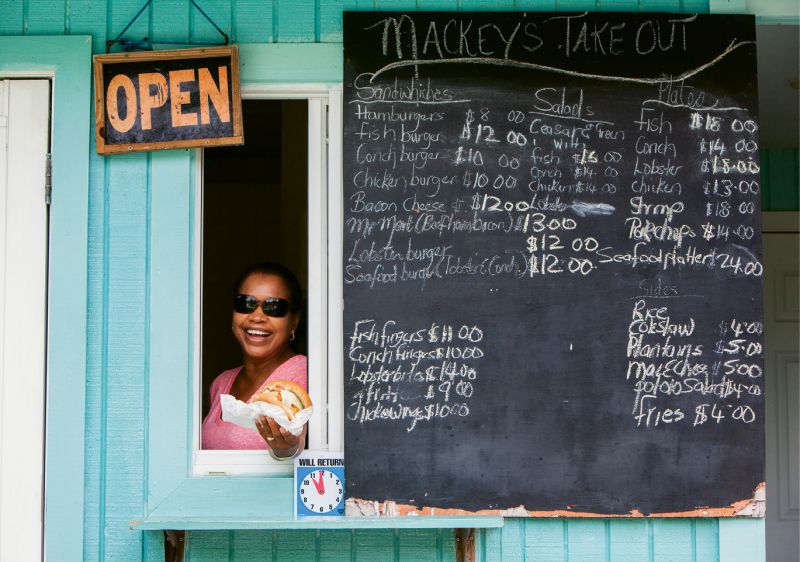 OPEN
MACKEY'S TAKE OUT
Sandwhiches
Hamburgers $8 00
fish burger $12 00
Conch burger $10 00
Chicken burger $10 00
Bacon Cheese $12 00
(Beef ham bacon) $13 00
Lobster burger $12 00
Seafood burger (lobster & Conch) $12 00
Fish fingers $11 00
Conch fingers $10 00
Lobster bites $14 00
$9 00
Chicken wings $10 00
Salads
Ceasar & Green
with
fish $16 00
Conch $14 00
Chicken $14 00
Lobster
Plates
Fish $18 00
Conch $14 00
Lobster $18 00
chicken $13 00
Shrimp $18 00
Porkchops $14 00
Seafood platter $24 00
Sides
Rice
Coleslaw $4 00
Plantains $5 00
Mac & Chees $5 00
potato Salad $4 00
fries $4 00
WILL RETURN